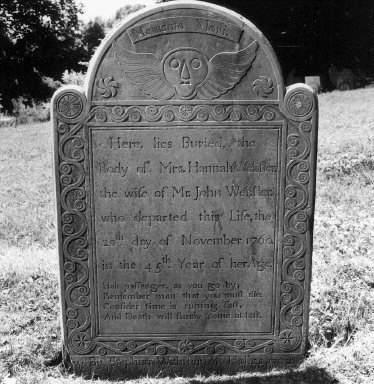 Memento Mori
Here, lies Buried, the
Body of Mrs. Hannah Webster
the wife of Mr. John Webster
who departed this Life, the
29th day of November 1760
in the 45th Year of her Age.
passenger, as you go by;
Remember man that you must die;
Consider time is runing fast,
And Death will surely come at last.
By Stephen Webster of